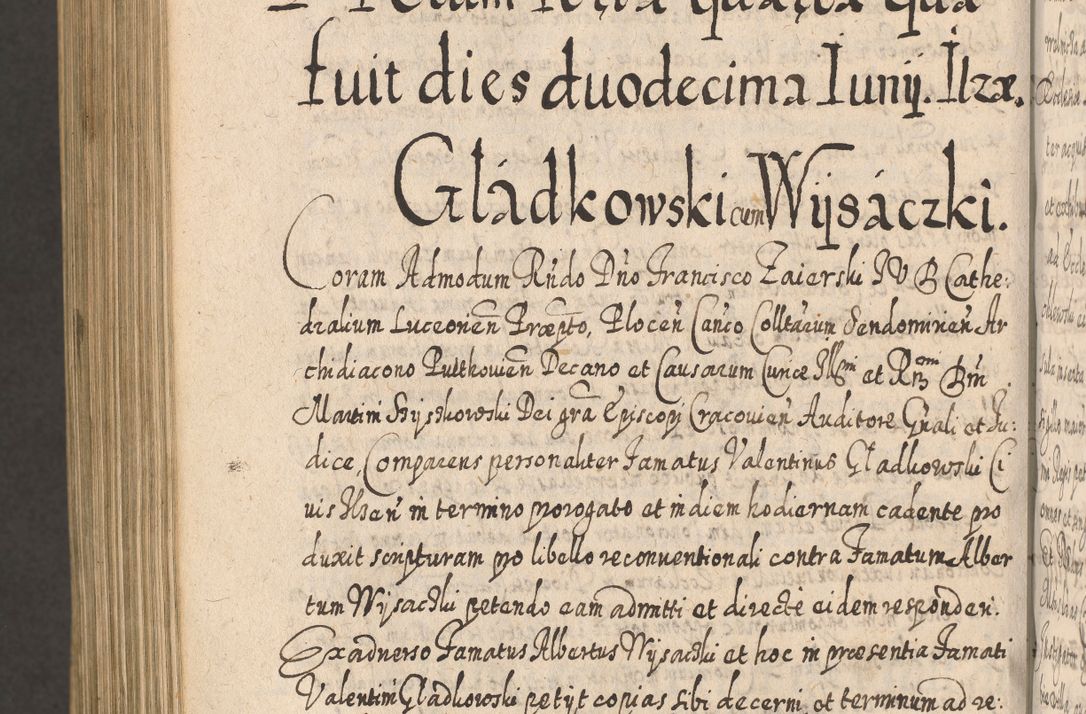 Feria quarta quae
fuit dies duodecima Iunij. Ilzae.
Gládkowski cum Wijsáczki.
Coram Admodum Rńdo Dńo Francisco Zaierski IVD Cathe:
dralium Luceorień Præpto, Ploceń Canco Colltarum Sendomirień Ar
chidiacono Pulthowień Decano et Causarum Curiæ Illmi et Rmi Dni
Martini Szyszkowski Dei gra Episcopi Cracovień Auditore Gnali et Iu:
dice, Comparens personaliter Famatus Valentinus Gladkowski Ci
uis Ilzeń in termino prorogato et in diem hodiernam cadente pro
duxit scripturam pro libello reconventionali contra Famatum Alber
tum Wijsaczki petendo eam admitti et directe eidem responderi.
Ex adverso Famatus Albertus Wijsaczki et hoc in præsentia Famati
Valentini Gladkowski petijt copias sibi decerni et terminum ad re: